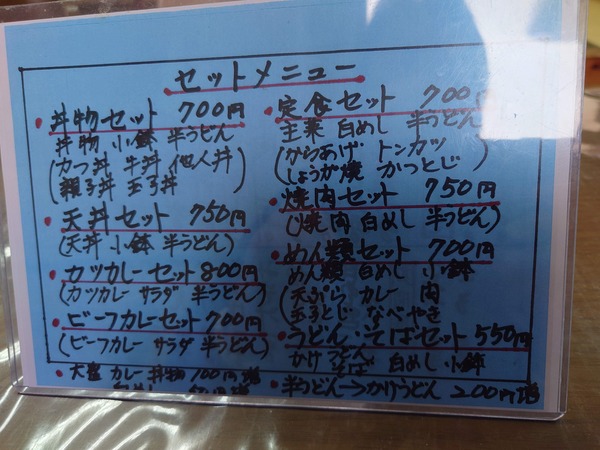 セットメニュー
・丼物セット 700円
丼物 小鉢 半うどん
(カツ丼 牛丼 他人丼
親子丼 玉子丼)
・天丼セット 750円
(天丼 小鉢 半うどん)
・カツカレーセット 800円
(カツカレー サラダ 半うどん)
・ビーフカレーセット 700円
(ビーフカレー サラダ 半うどん)
・大盛 カレー 丼物 100円増
・定食セット 700円
主菜 白めし 半うどん
(からあげ トンカツ
しょうが焼 かつとじ)
・焼肉セット 750円
(焼肉 白めし 半うどん)
・めん類セット 700円
めん類 白めし 小鉢
(天ぷら カレー 肉
玉子とじ なべやき)
・うどん・そばセット 550円
かけ うどん そば 白めし 小鉢
・半うどん→かけうどん 200円増